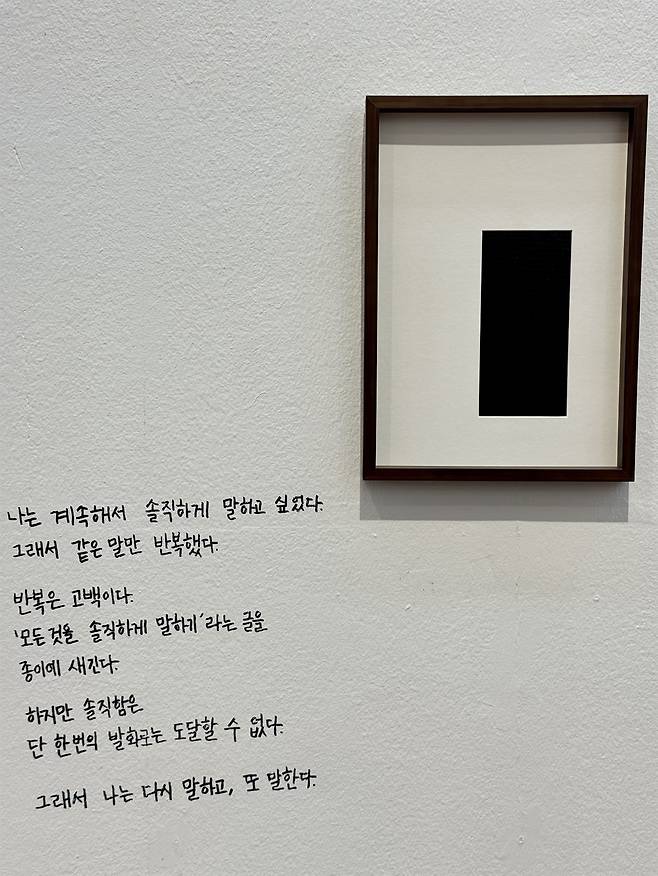 나는 계속해서 솔직하게 말하고 싶었다.
그래서 같은 말만 반복했다.
반복은 고백이다.
'모든것을 솔직하게 말하기'라는 글을
종이에 새긴다.
하지만 솔직함은
단 한번의 발화로는 도달할 수 없다.
그래서 나는 다시 말하고, 또 말한다.